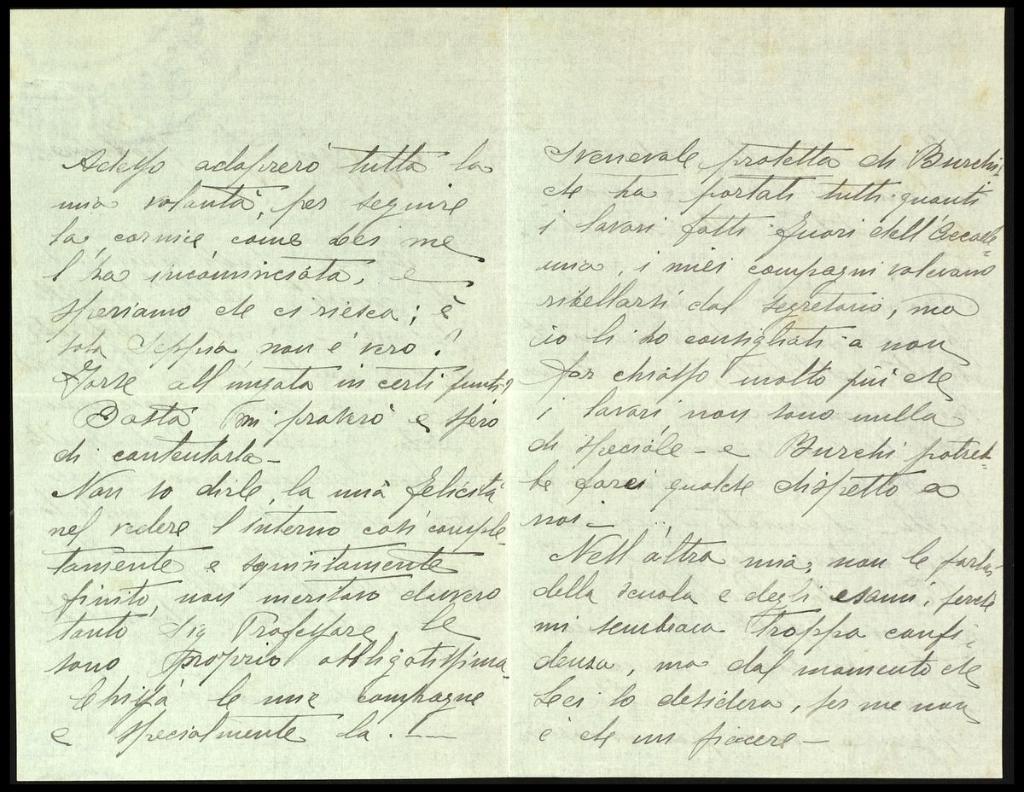 Adesso adoprerò tutta la
mia volontà, per seguire
la cornice come Lei me
l'ha incominciata, e
speriamo che ci riesca; è
tota seppia non è vero?
Forse all'ungata in certi punti?
Basta mi proverò e spero
di contentarla –
Non so dirle, la mia felicità
nel vedere l'interno così comple-
tamente e squisitamente
finito, non meritavo davvero
tanto Sig Professore, le
sono proprio obbligatissima
Chissà le mie compagne
e specialmente la . –
svenevole protetta di Burchi
che ha portati tutti quanti
i lavori fatti fuori dell'Accade
mia, i miei compagni volevano
ribellarsi dal segretario, ma
io li ho consigliati a non
far chiasso molto più che
i lavori non sono nulla
di speciale – e Burchi potreb-
be farci qualche dispetto a
noi –
Nell'altra mia, non le parlai
della scuola e degli esami, perchè
mi sembrava troppa confi-
denza, ma dal momento che
Lei lo desidera, per me non
è che un piacere –